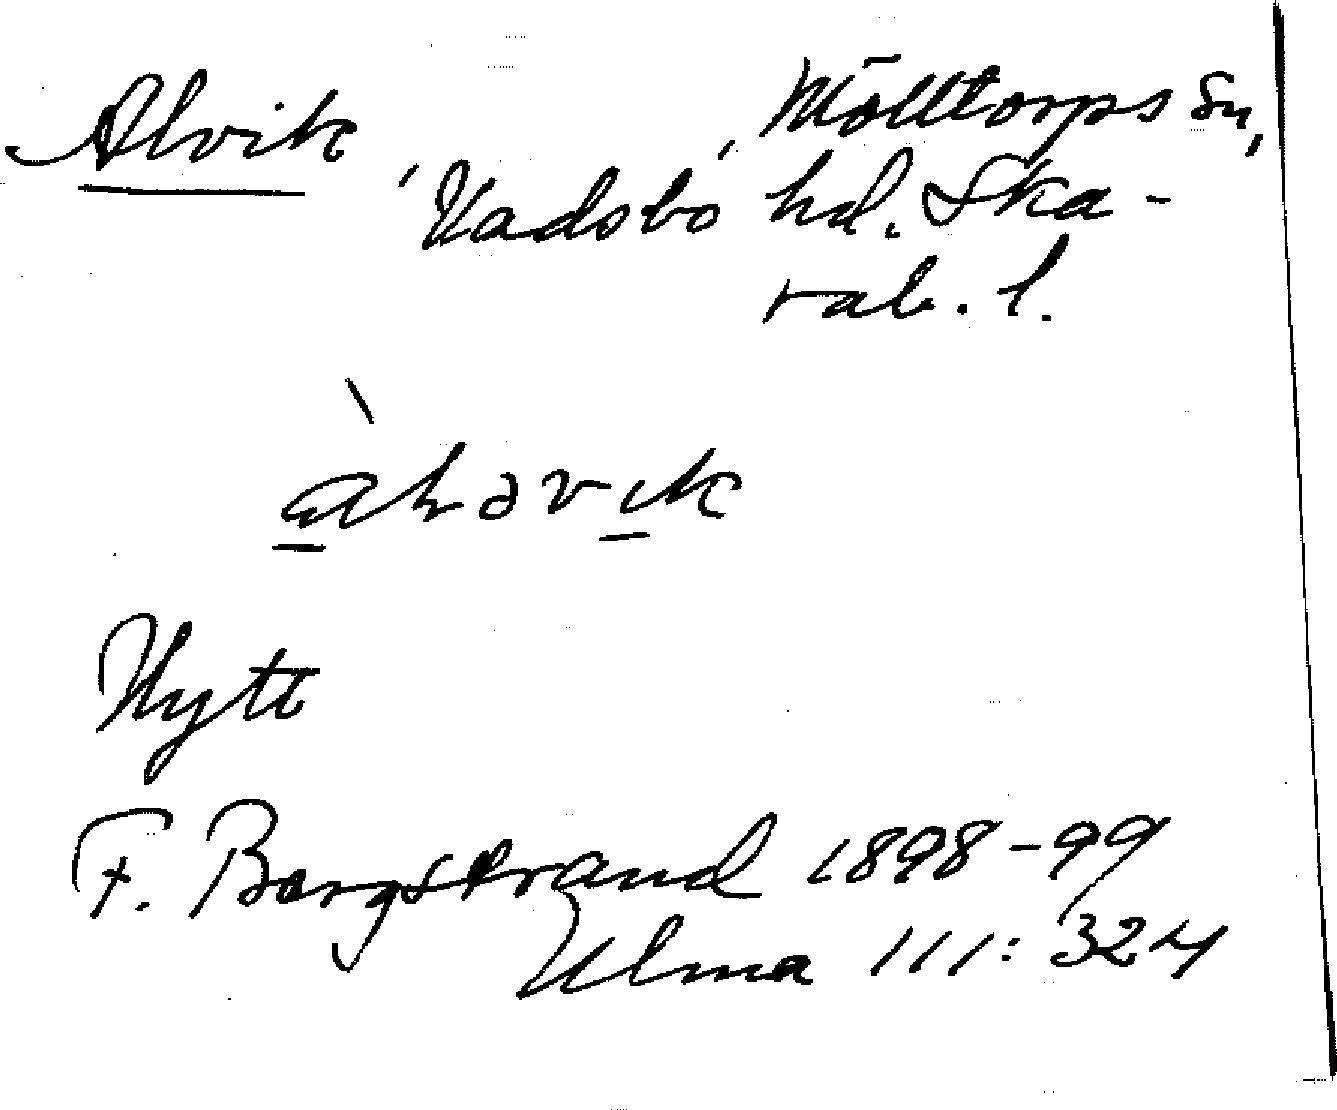 Alvik, Mölltorps sn,
Vadsbo hd. Ska-
rab. l.
Nytt
F. Bergstrand 1898-99
Ulma 111:324